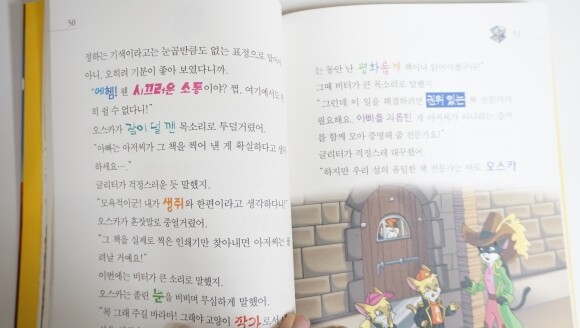 50
정하는 기색이라고는 눈곱만큼도 없는 표정으로 말이
아니, 오히려 기분이 좋아 보였다니까.
"에헴! 웬 시끄러운 소동이야? 쩝, 여기에서도
히 쉴 수 없다니!"
오스카가 잠이 덜 깬 목소리로 투덜거렸어.
"아빠는 아저씨가 그 책을 찍어 낸 게 확실하다고 생
하세요…."
글리터가 걱정스러운 듯 말했지.
"모욕적이군! 내가 생쥐와 한편이라고 생각하다니!"
오스카가 혼잣말로 중얼거렸어.
"그 책을 실제로 찍은 인쇄기만 찾아내면 아저씨는
려날 거예요!"
이번에는 비터가 큰 소리로 말했지.
오스카는 졸린 눈을 비비며 무심하게 말했어.
"꼭 그래 주길 바라마! 그래야 고양이 작가로서
51
는 동안 난 평화롭게 책이나 읽어야겠구나!"
그때 비터가 큰 목소리로 말했지.
"그런데 이 일을 해결하려면 권위 있는 책 전문가가
필요해요. 아빠를 괴롭힌 게 아저씨가 아니라는 증거
를 함께 모아 증명해 줄 전문가요!"
글리터가 걱정스레 대꾸했어.
"하지만 우리 섬의 유일한 책 전문가는 바로 오스카